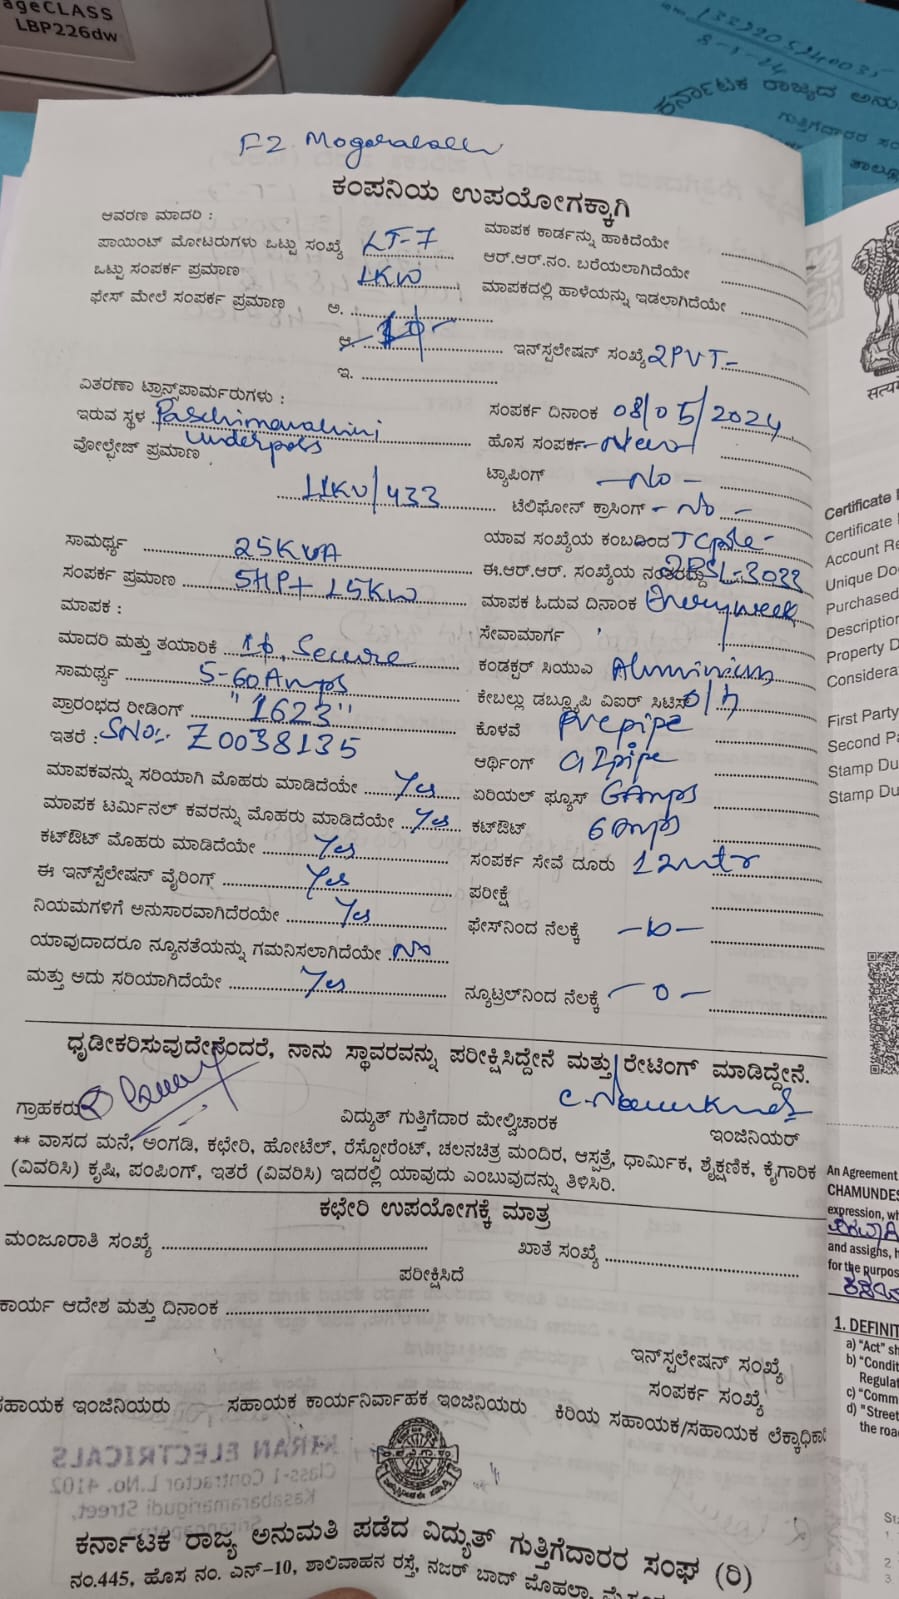 ageCLASS
LBP226dw
1322205240035
8-5-24
ಕರ್ನಾಟಕ ರಾಜ್ಯದ ಅನು
ಗುತ್ತಿಗೆದಾರರ ಸಂ
F2
ಕಂಪನಿಯ ಉಪಯೋಗಕ್ಕಾಗಿ
ಆವರಣ ಮಾದರಿ :
ಮಾಪಕ ಕಾರ್ಡನ್ನು ಹಾಕಿದೆಯೇ
ಪಾಯಿಂಟ್ ಮೋಟರುಗಳು ಒಟ್ಟು ಸಂಖ್ಯೆ LT-7
ಆರ್.ಆರ್.ನಂ. ಬರೆಯಲಾಗಿದೆಯೇ
ಒಟ್ಟು ಸಂಪರ್ಕ ಪ್ರಮಾಣ 1KW
ಮಾಪಕದಲ್ಲಿ ಹಾಳೆಯನ್ನು ಇಡಲಾಗಿದೆಯೇ
ಫೇಸ್ ಮೇಲೆ ಸಂಪರ್ಕ ಪ್ರಮಾಣ ಅ.
ಆ. 1ϕ-
ಇನ್ಸ್ಪಲೇಷನ್ ಸಂಖ್ಯೆ 2PVT-
ಇ.
ವಿತರಣಾ ಟ್ರಾನ್ಸ್‌ಪಾರ್ಮರುಗಳು :
ಸಂಪರ್ಕ ದಿನಾಂಕ 08/05/2024
ಇರುವ ಸ್ಥಳ Paschimavahini underpass
ಹೊಸ ಸಂಪರ್ಕ - New
ವೋಲ್ಟೇಜ್ ಪ್ರಮಾಣ 11KV/433
ಟ್ಯಾಪಿಂಗ್ - No -
ಟೆಲಿಫೋನ್ ಕ್ರಾಸಿಂಗ್ - No -
ಸಾಮರ್ಥ್ಯ 25KVA
ಯಾವ ಸಂಖ್ಯೆಯ ಕಂಬದಿಂದ TCpole-
ಸಂಪರ್ಕ ಪ್ರಮಾಣ 5HP+ 15KW
ಈ.ಆರ್.ಆರ್. ಸಂಖ್ಯೆಯ ನಂತರದ್ದು
ಮಾಪಕ :
ಮಾಪಕ ಓದುವ ದಿನಾಂಕ Every week
ಸೇವಾಮಾರ್ಗ
ಮಾದರಿ ಮತ್ತು ತಯಾರಿಕೆ 1ϕ, Secure
ಕಂಡಕ್ಟರ್ ಸಿಯುಎ Aluminium
ಸಾಮರ್ಥ್ಯ 5-60Amps
ಕೇಬಲ್ಲು ಡಬ್ಲ್ಯೂಪಿ ವಿಐರ್ ಸಿಟಿಸ್ O/h
ಪ್ರಾರಂಭದ ರೀಡಿಂಗ್ "1623"
ಕೊಳವೆ PVC pipe
ಇತರೆ : SNo:- Z0038135
ಆರ್ಥಿಂಗ್ GI pipe
ಮಾಪಕವನ್ನು ಸರಿಯಾಗಿ ಮೊಹರು ಮಾಡಿದೆಯೇ Yes
ಏರಿಯಲ್ ಫ್ಯೂಸ್ 6Amps
ಮಾಪಕ ಟರ್ಮಿನಲ್ ಕವರನ್ನು ಮೊಹರು ಮಾಡಿದೆಯೇ Yes
ಕಟ್‌ಔಟ್ 6 Amps
ಕಟ್‌ಔಟ್ ಮೊಹರು ಮಾಡಿದೆಯೇ Yes
ಸಂಪರ್ಕ ಸೇವೆ ದೂರು 12 mtr
ಈ ಇನ್‌ಸ್ಪೆಲೇಷನ್ ವೈರಿಂಗ್ Yes
ಪರೀಕ್ಷೆ
ನಿಯಮಗಳಿಗೆ ಅನುಸಾರವಾಗಿದೆರಯೇ Yes
ಫೇಸ್‌ನಿಂದ ನೆಲಕ್ಕೆ
ಯಾವುದಾದರೂ ನ್ಯೂನತೆಯನ್ನು ಗಮನಿಸಲಾಗಿದೆಯೇ No
ಮತ್ತು ಅದು ಸರಿಯಾಗಿದೆಯೇ Yes
ನ್ಯೂಟ್ರಲ್‌ನಿಂದ ನೆಲಕ್ಕೆ - 0 -
ಧೃಡೀಕರಿಸುವುದೇನೆಂದರೆ, ನಾನು ಸ್ಥಾವರವನ್ನು ಪರೀಕ್ಷಿಸಿದ್ದೇನೆ ಮತ್ತು ರೇಟಿಂಗ್ ಮಾಡಿದ್ದೇನೆ.
ಗ್ರಾಹಕರು
ವಿದ್ಯುತ್ ಗುತ್ತಿಗೆದಾರ ಮೇಲ್ವಿಚಾರಕ
ಇಂಜಿನಿಯರ್
** ವಾಸದ ಮನೆ, ಅಂಗಡಿ, ಕಛೇರಿ, ಹೋಟೆಲ್, ರೆಸ್ಟೋರೆಂಟ್, ಚಲನಚಿತ್ರ ಮಂದಿರ, ಆಸ್ಪತ್ರೆ, ಧಾರ್ಮಿಕ, ಶೈಕ್ಷಣಿಕ, ಕೈಗಾರಿಕ
(ವಿವರಿಸಿ) ಕೃಷಿ, ಪಂಪಿಂಗ್, ಇತರೆ (ವಿವರಿಸಿ) ಇದರಲ್ಲಿ ಯಾವುದು ಎಂಬುವುದನ್ನು ತಿಳಿಸಿರಿ.
ಕಛೇರಿ ಉಪಯೋಗಕ್ಕೆ ಮಾತ್ರ
ಮಂಜೂರಾತಿ ಸಂಖ್ಯೆ
ಖಾತೆ ಸಂಖ್ಯೆ
ಪರೀಕ್ಷಿಸಿದೆ
ಕಾರ್ಯ ಆದೇಶ ಮತ್ತು ದಿನಾಂಕ
ಇನ್‌ಸ್ಪಲೇಷನ್ ಸಂಖ್ಯೆ
ಸಂಪರ್ಕ ಸಂಖ್ಯೆ
ಸಹಾಯಕ ಇಂಜಿನಿಯರು
ಸಹಾಯಕ ಕಾರ್ಯನಿರ್ವಾಹಕ ಇಂಜಿನಿಯರು
ಕಿರಿಯ ಸಹಾಯಕ/ಸಹಾಯಕ ಲೆಕ್ಕಾಧಿಕಾ
KIRAN ELECTRICALS
Class-1 Contractor L.No. 4102
Street,
ಕರ್ನಾಟಕ ರಾಜ್ಯ ಅನುಮತಿ ಪಡೆದ ವಿದ್ಯುತ್ ಗುತ್ತಿಗೆದಾರರ ಸಂಘ (ರಿ)
ನಂ.445, ಹೊಸ ನಂ. ಎನ್-10, ಶಾಲಿವಾಹನ ರಸ್ತೆ, ನಜರ್ ಬಾದ್ ಮೊಹಲ್ಲಾ,
Certificate
Certificate
Account Re
Unique Do
Purchased
Description
Property D
Considera
First Party
Second Pa
Stamp Du
Stamp Du
An Agreement
CHAMUNDES
expression, wh
and assigns, h
for the purpos
1. DEFINIT
a) "Act" sh
b) "Condit
Regulat
c) "Comm
d) "Street
the roa